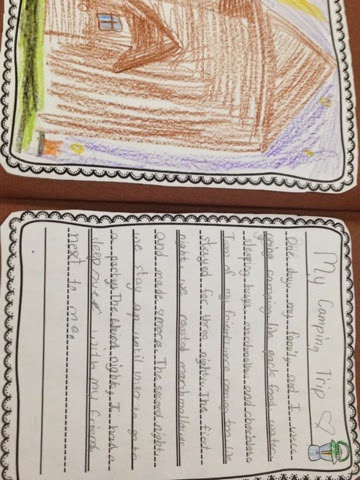 My Camping Trip
One day my family and I were
going camping. We pack food, water,
sleeping bags, and
Two of my friends were coming too. We
stayed for three nights. The first
night we roasted marshmallows
and made smores. The second night
we stay up until to go to
a party. The third night, I had a
sleepover with my friends
next to me.